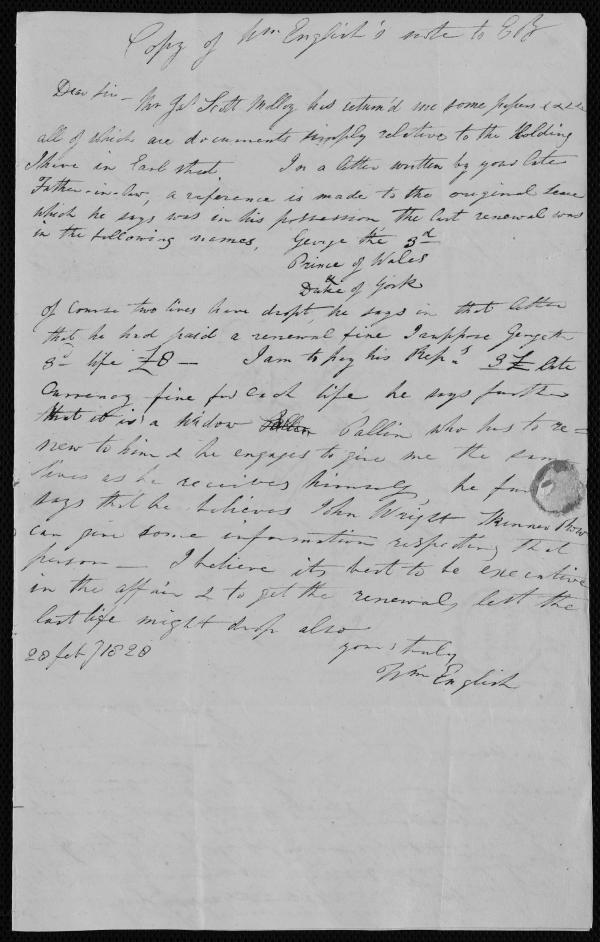 Copy of Wm English's note to EB
Dear Sir - Mr Jas Scott Molloy has return'd me some papers
all of which are documents simply relative to the Holding
I have in Earl street, In a letter written by your late
Father-in-law, a reference is made to the original lease
which he says was in his possession the last renewal was
in the following names, George the 3rd
Prince of Wales
Duke of York
of Course two lives have dropt, he says in that letter
that he had paid a renewal fine I suppose George the
3rd life £8 - I am to pay his Reps 3£ late
Currency fine for each life he says further
that it is a widow Pallin who has to re=
new to him & he engages to give me the same
lives as he receives himself he
says that he believes John Wright Skinner Row
can give some information respecting that
person - I believe its best to be executive
in the affair & to get the renewal, lest the
last life might drop also
28 feby 1828 yours truly
Wm English